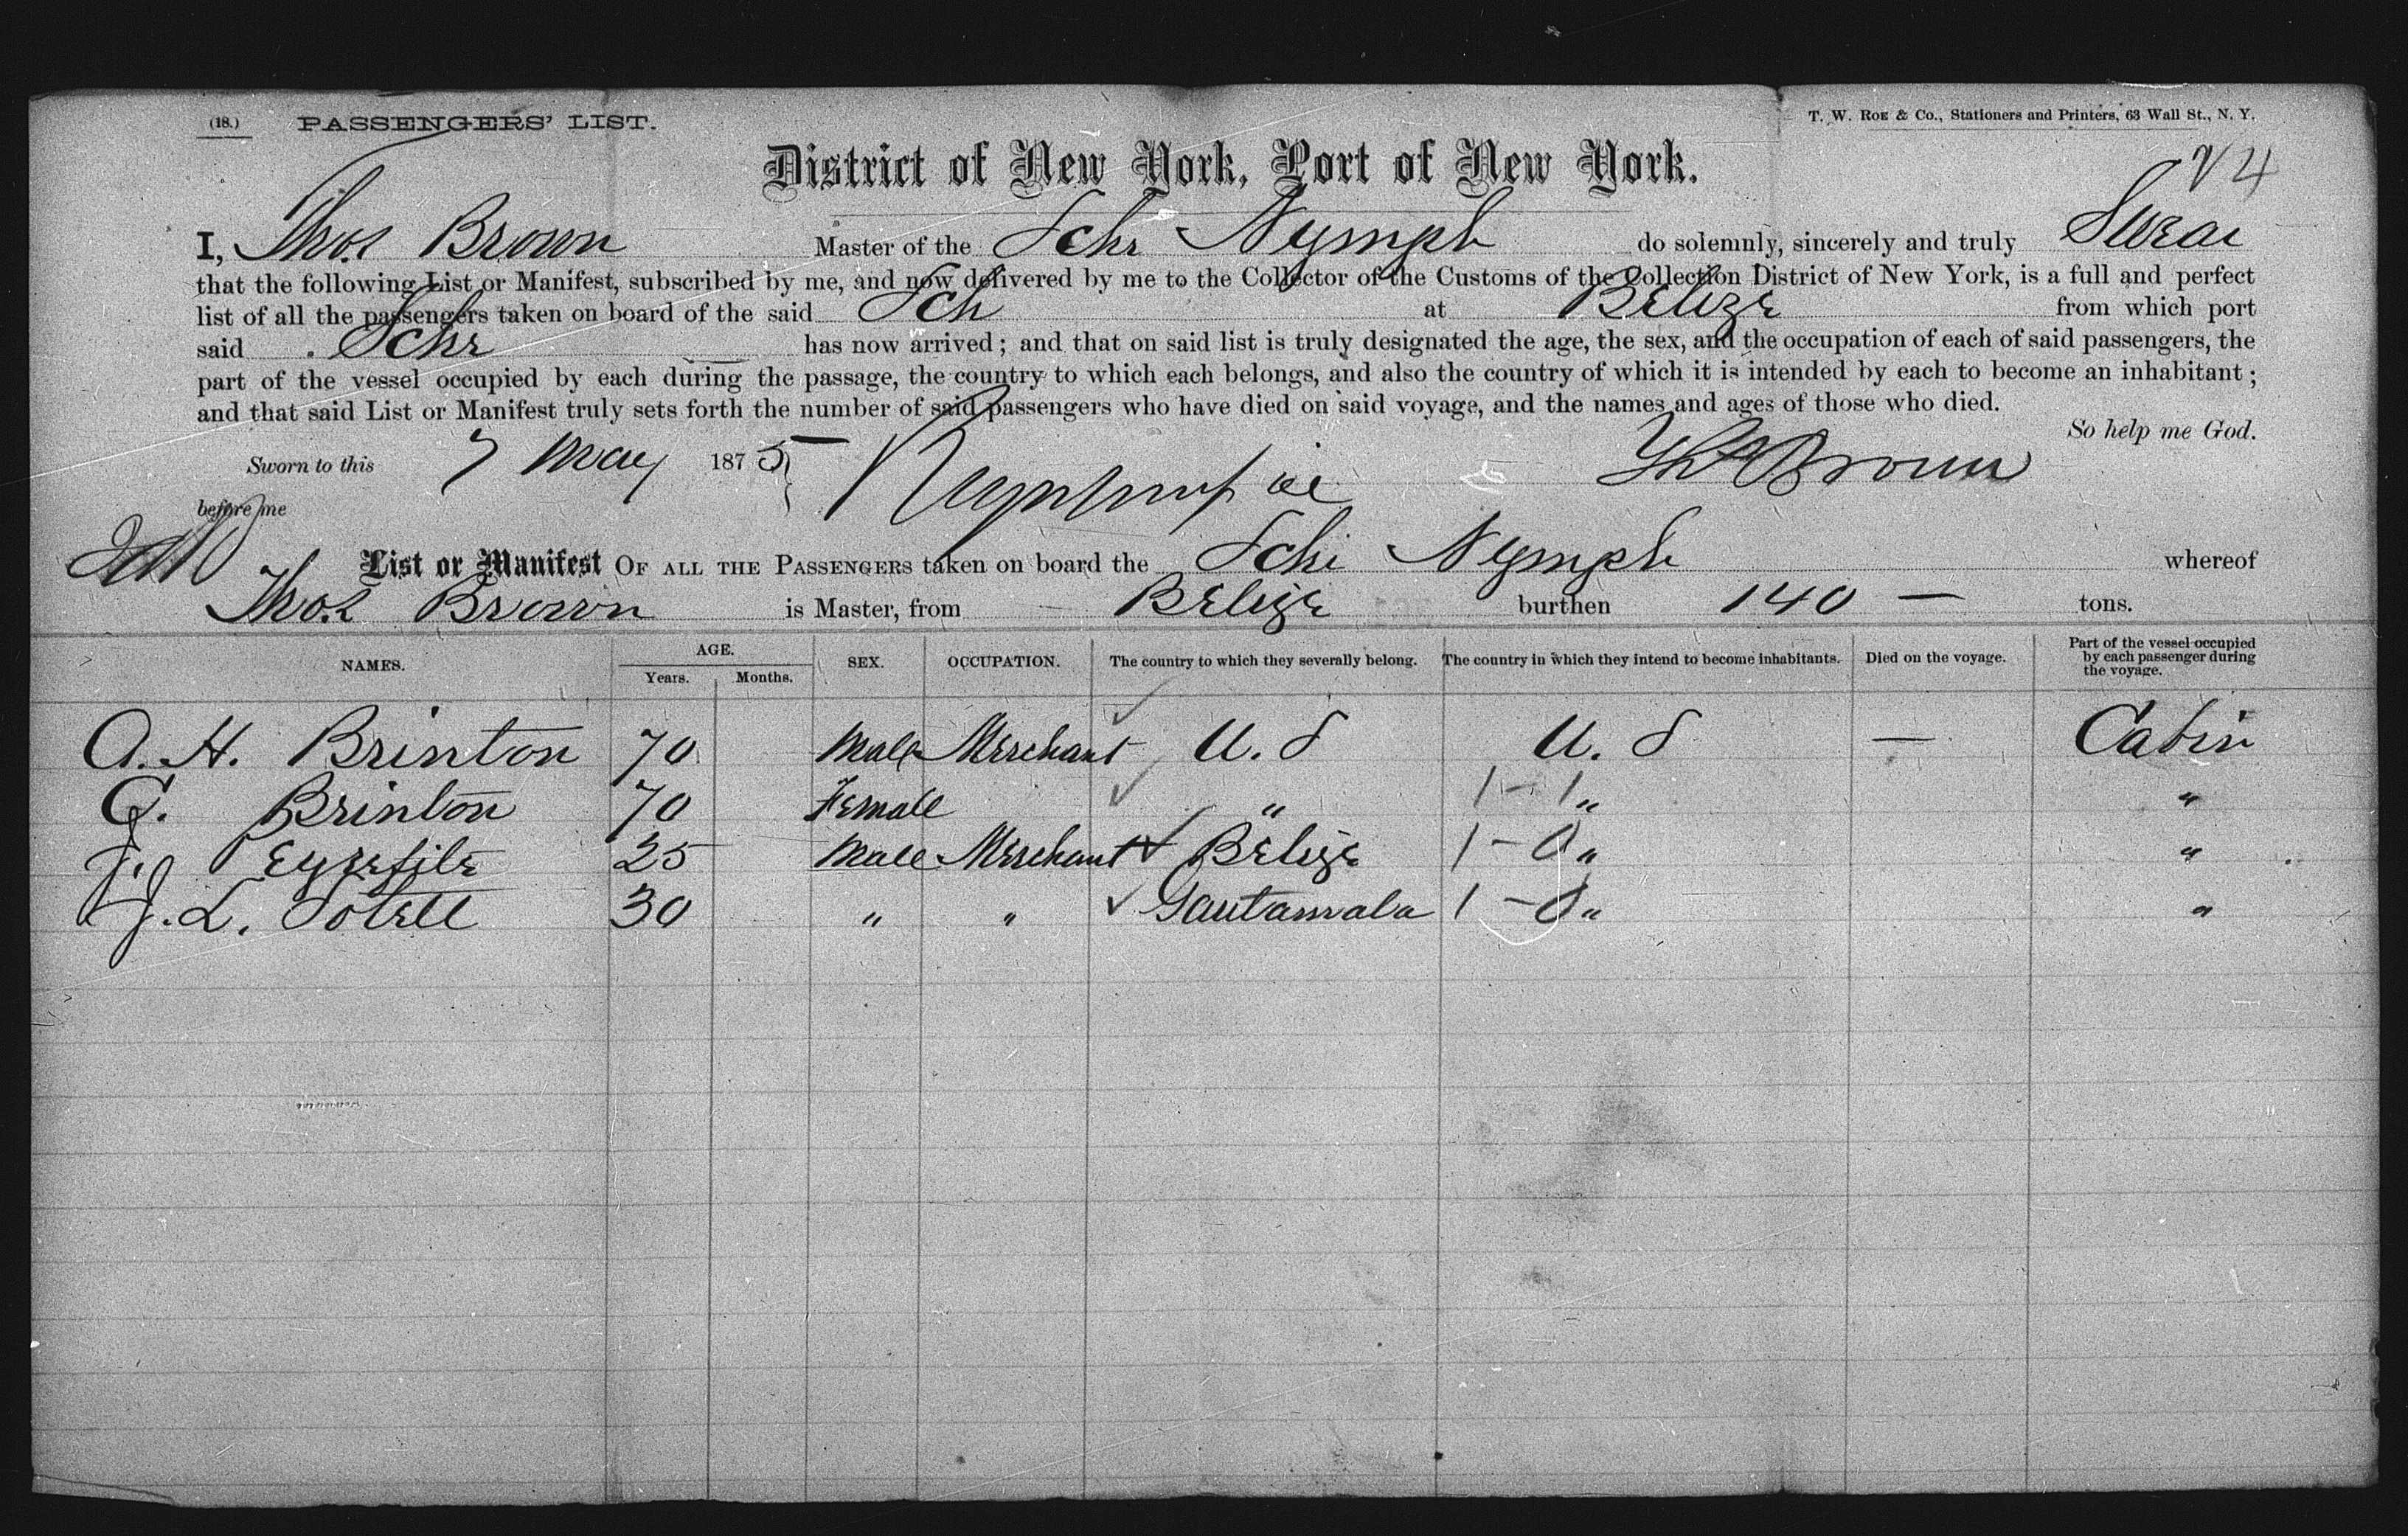 (18.) PASSENGERS' LIST. T. W. ROE & Co., Stationers and Printers, 63 Wall St., N. Y.
District of New York, Port of New York.
I, Thos Brown Master of the Schr Nymph do solemnly, sincerely and truly Swear
that the following List or Manifest, subscribed by me, and now delivered by me to the Collector of the Customs of the Collection District of New York, is a full and perfect
list of all the passengers taken on board of the said Sch at Belize from which port
said Schr has now arrived; and that on said list is truly designated the age, the sex, and the occupation of each of said passengers, the
part of the vessel occupied by each during the passage, the country to which each belongs, and also the country of which it is intended by each to become an inhabitant;
and that said List or Manifest truly sets forth the number of said passengers who have died on said voyage, and the names and ages of those who died.
So help me God.
Sworn to this 7 May 1875 Thos Brown
before me
List or Manifest OF ALL THE PASSENGERS taken on board the Schr Nymph whereof
Thos Brown is Master, from Belize burthen 140 — tons.
NAMES. AGE. Years. Months. SEX. OCCUPATION. The country to which they severally belong. The country in which they intend to become inhabitants. Died on the voyage. Part of the vessel occupied by each passenger during the voyage.
A. H. Brinton 70 Male Merchant U. S U. S — Cabin
C. Brinton 70 Female " 1 - 1 " "
25 Male Merchant Belize 1 - 0 " "
J. L. Sotell 30 " " Gautamala 1 - 0 " "